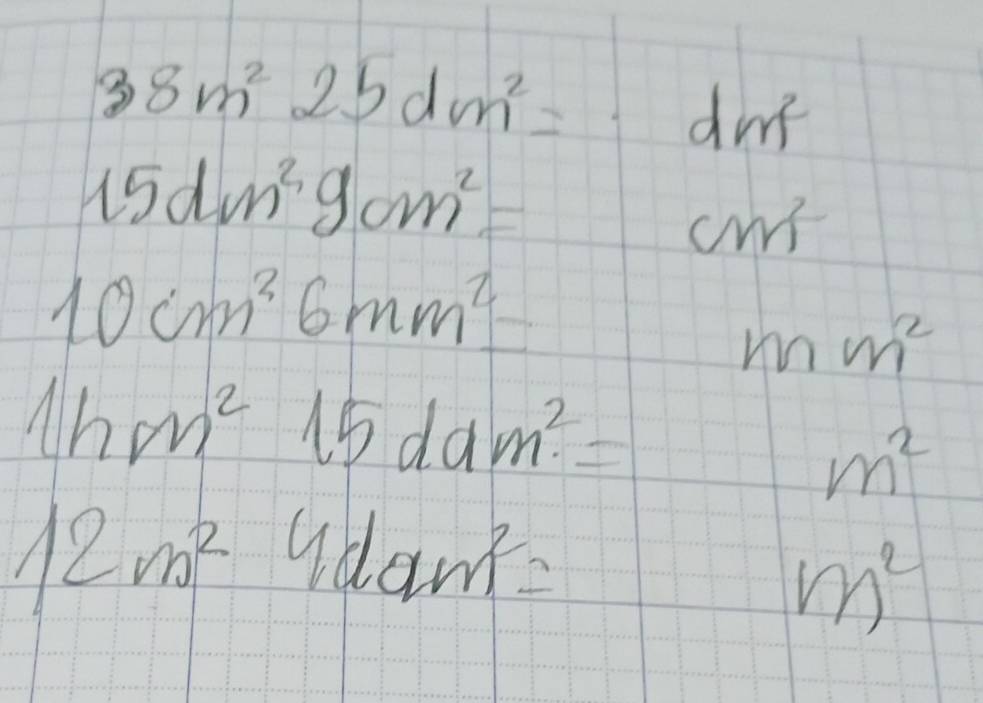 38m² 25dm² = dm²
15dm² 9cm² = cm²
10cm² 6mm² = mm²
1hm² 15dam² = m²
12m² 4dam² = m²